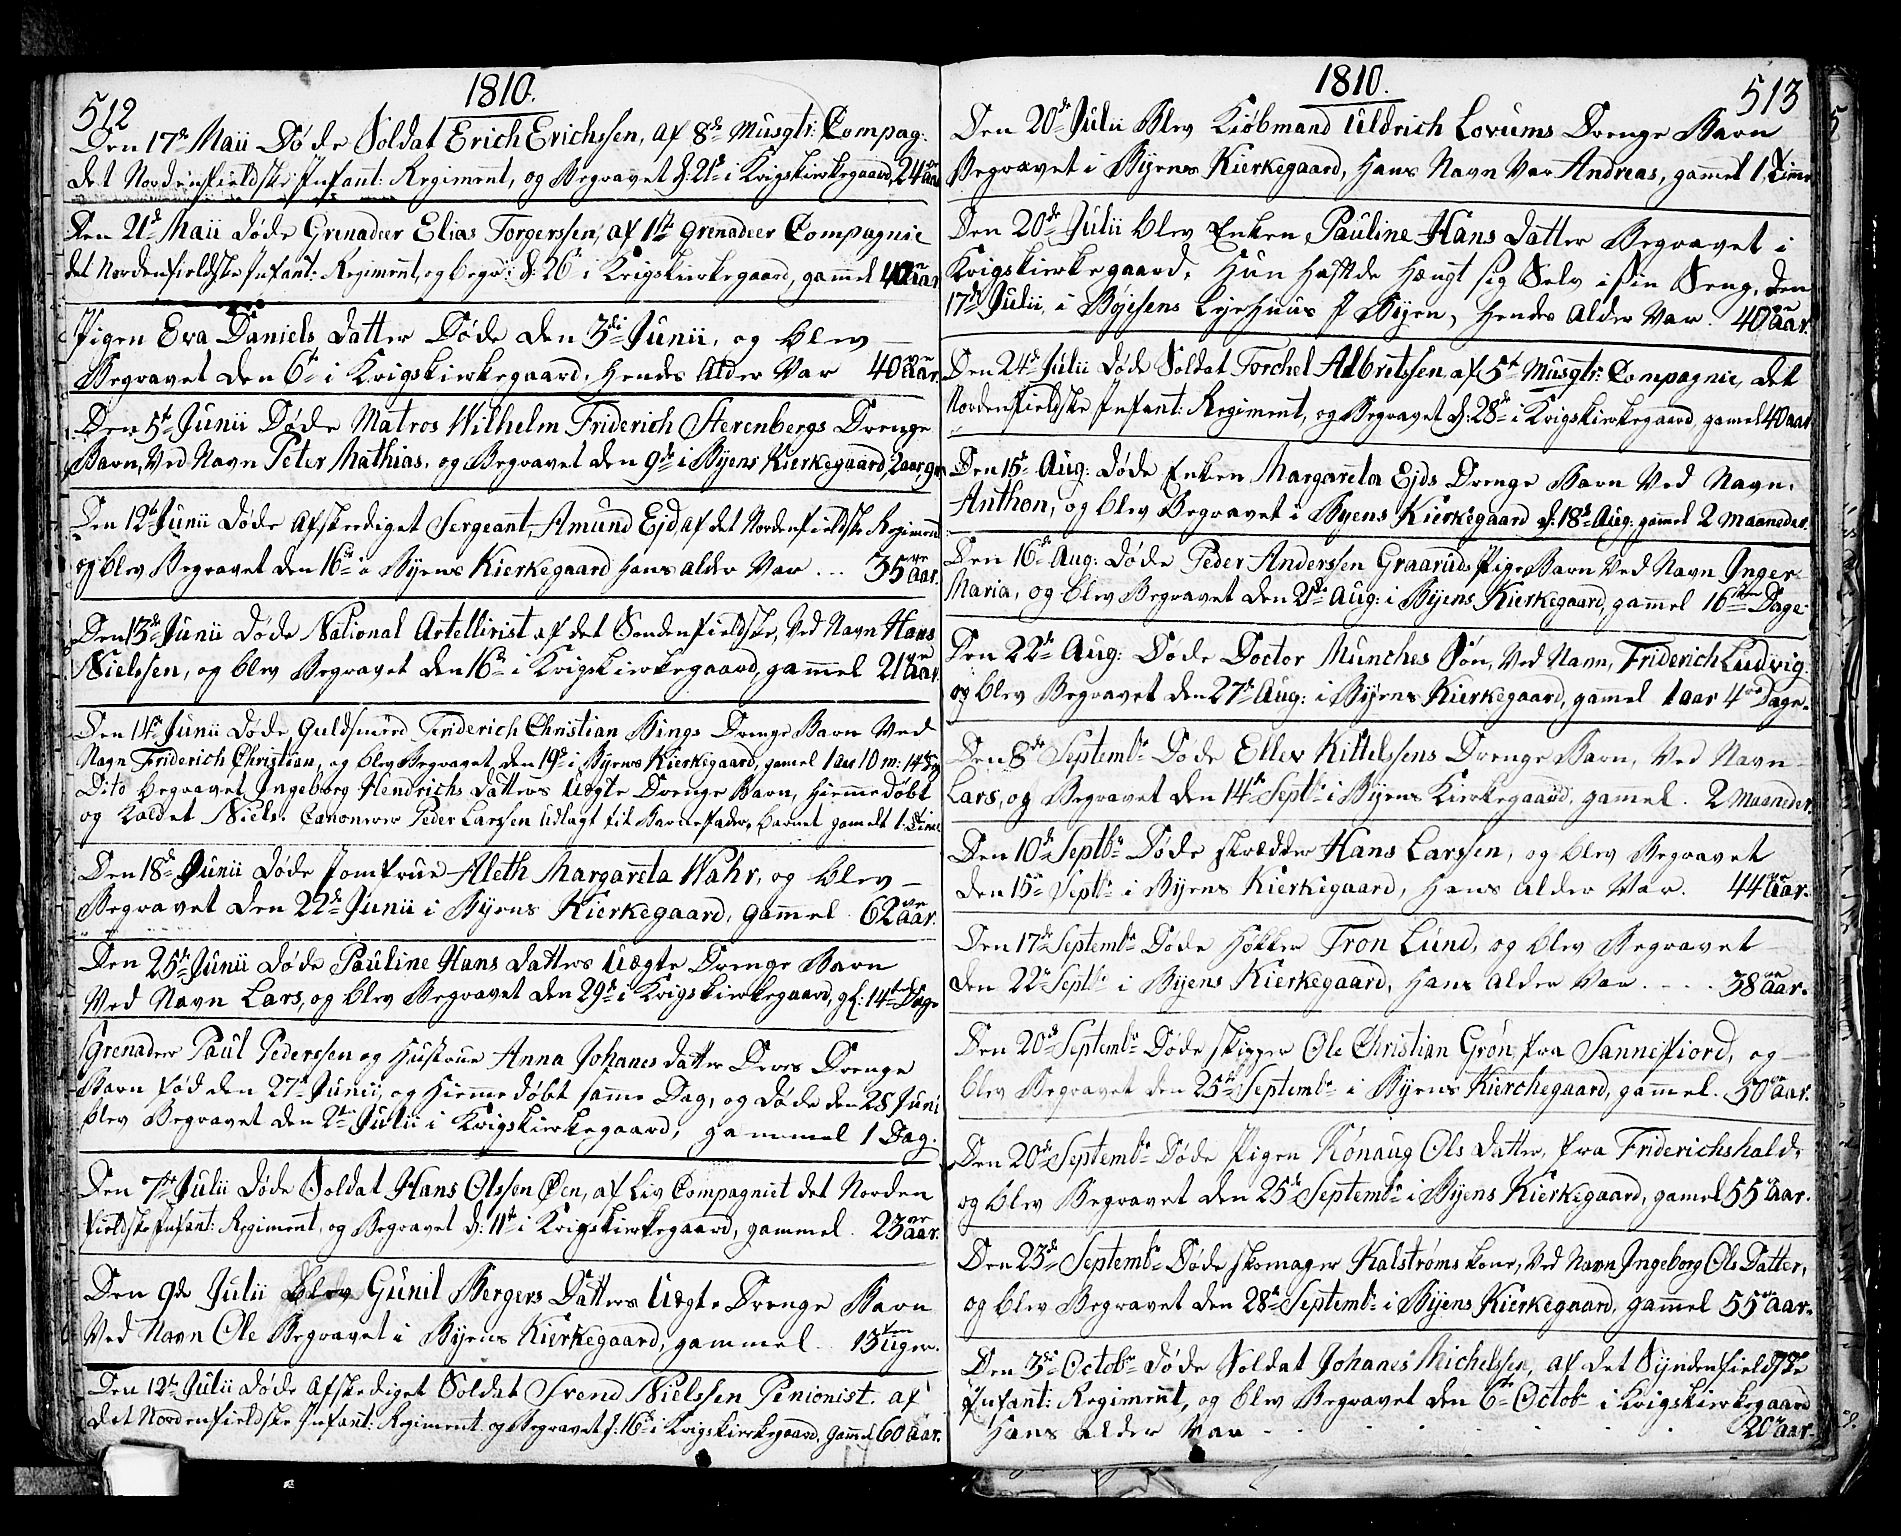 512
1810.
Den 17de Maii Døde Soldat Erich Erichssen, af 8de Musqtr: Compag.
det Nordenfieldske Infant: Regiment, og Begravet d: 21de i Krigskirkegaard, 24 Aar
Den 21de Maii døde Grenadeer Elias Torgerssen, af 1te Grenadeer Compagnie
det Nordenfieldske Infant: Regiment, og begr: d: 26de i Krigskirkegaard, gammel 42 Aar
Pigen Eva Daniels datter Døde den 3die Junii, og blev
Begravet den 6te i Krigskirkegaard, hendes Alder Var 40 Aar.
Den 5te Junii Døde Matros Wilhelm Friderich Sterenbergs Drenge
Barn, Ved Navn Peter Mathias, og Begravet den 9de i Byens Kierkegaard, 2 aar, 9
Den 12te Junii døde Afskeediget Sergeant, Amund Ejd, af det Nordenfieldske Regiment
og blev Begravet den 16de i Byens Kierkegaard hans alder Var ... 35 Aar.
Den 13de Junii døde National Artellirist af det Søndenfieldske, Ved Navn Hans
Nielssen, og blev Begravet den 16de i Krigskirkegaard, gammel 21 Aar.
Den 14de Junii døde Guldsmed Friderich Christian Bings Drenge Barn Ved
Navn Friderich Christian, og blev Begravet, den 19de i Byens Kierkegaard, gamel 1 aar 10 m: 14 Dg
Dito begravet Ingeborg Hendrichs datters Uægte Drenge Barn, hiemmedøbt
og kaldet Niels. Canonerer Peder Larssen udlagt til Barnefader, barnet gamelt 1 Time
Den 18de Junii døde Jomfrue Aleth Margareta Wahr, og blev
Begravet den 22de Junii i Byens Kierkegaard, gammel 62 Aar.
Den 25de Junii døde Pauline Hans datters Uægte Drenge Barn
Ved Navn Lars, og blev Begravet den 29de i Krigskirkegaard, gl: 14 Dage
Grenadeer Paul Pederssen og Hustrue Anna Johanes datter Deres Drenge
Barn fød den 27de Junii, og hiemmedøbt samme Dag, og døde den 28 Juni
blev Begravet den 2den Julii i Krigskirkegaard, gammel 1 Dag.
Den 7de Julii døde Soldat Hans Olssen Øen, af Liv Compagniet det Norden
fieldske Infant: Regiment, og Begravet d: 11te i Krigskirkegaard, gammel. 23 Aar.
Den 9de Julii blev Gunil Bergers Datters Uægte Drenge Barn
Ved Navn Ole Begravet i Byens Kierkegaard, gammel. 13 Uger.
Den 12te Julii døde Afskediget Soldat Svend Nielssen Penionist. af
det Nordenfieldske Infant: Regiment og Begravet d: 16de i Krigskirkegaard, gammel 60 Aar.
1810.
513
Den 20de Julii blev Kiøbmand Uldrich Lorums Drenge Barn
Begravet i Byens Kierkegaard, hans Navn Var Andreas, gammel 1 Time
Den 20de Julii blev Enken Pauline Hans datter Begravet i
Krigskirkegaard, hun hafde hængt sig Selv i sin Seng, den
17de Julii, i Byens Sygehuus i Byen, hendes Alder Var. 40 Aar.
Den 24de Julii døde Soldat Torchel Albretssen, af 5te Musqtr: Compagnie, det
Nordenfieldske Infant: Regiment, og Begravet d: 28de i Krigskirkegaard, gamel 40 aar
Den 15de Aug: døde Enken Margareta Ejds Drenge Barn Ved Navn,
Anthon, og blev Begravet i Byens Kierkegaard d: 18de Aug: gammel 2 Maaneder.
Den 16de Aug: døde Peder Anderssen Graaruds Pige Barn Ved Navn Inger
Maria, og blev Begravet den 21de Aug: i Byens Kierkegaard, gammel 16 Dage.
Den 22de Aug: Døde Doctor Munches Søn, Ved Navn, Friderich Ludvig.
og blev Begravet den 27de Aug: i Byens Kierkegaard, gammel 1 aar 4 Dage.
Den 8de Septembr Døde Ellev Kittelssens Drenge Barn, Ved Navn
Lars, og Begravet den 14de Septbr i Byens Kierkegaard, gammel. 2 Maaneder.
Den 10de Septbr Døde Skrædder Hans Larssen, og blev Begravet
den 15de Septbr i Byens Kierkegaard, hans Alder Var. 44 Aar.
Den 17de Septembr Døde Høkker Tron Lund, og blev Begravet
den 22de Septbr i Byens Kierkegaard, hans Alder Var . . . . 38 Aar.
Den 20de Septembr Døde Skipper Ole Christian Grøn, fra Sannefiord, og
blev Begravet den 25de Septembr i Byens Kierchegaard, gammel. 50 Aar.
Den 20de Septembr Døde Pigen Rønaug Ols datter, fra Friderichshald,
og blev Begravet den 25de Septembr i Byens Kierkegaard, gamel 55 Aar.
Den 23de Septembr Døde Skomager Kalstrøms kone, Ved Navn Ingeborg Ols Datter,
og blev Begravet den 28de Septembr i Byens Kierkegaard, gammel 55 Aar.
Den 3die Octobr døde Soldat Johanes Michelssen, af det Syndenfieldske
Infant: Regiment, og blev Begravet den 6te Octobr i Krigskirkegaard
Hans Alder Var . . . . . . 20 Aar.